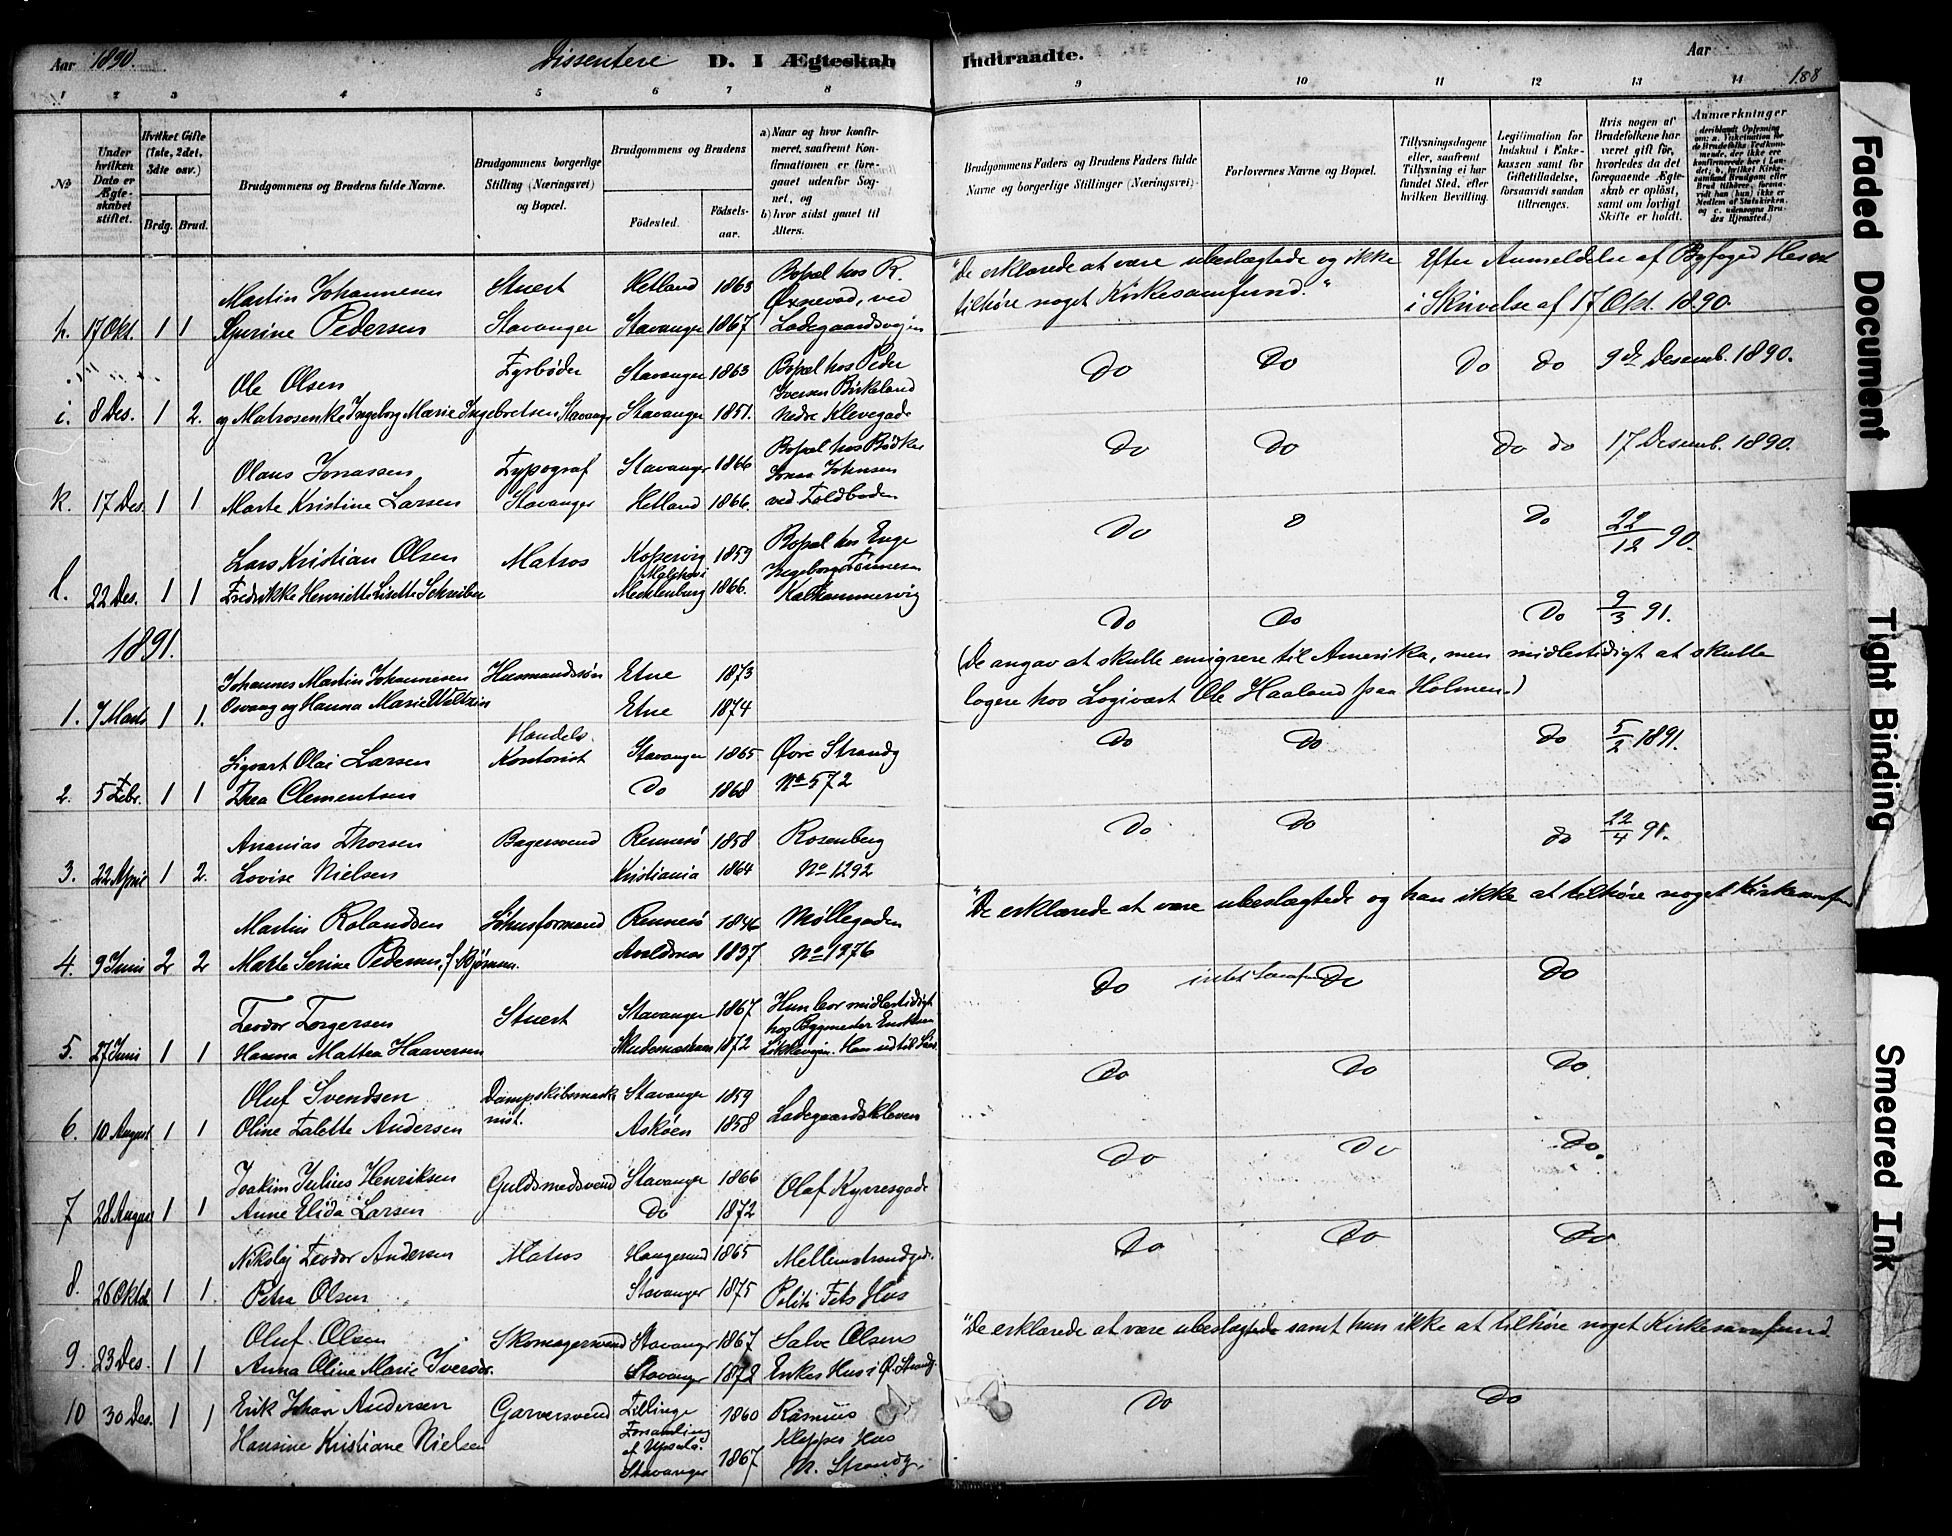 Aar 1890. Dissentere D. I Ægteskab Indtraadte. Aar 188
1 2 3 4 5 6 7 8 9 10 11 12 13 14
№
Under hvilken Dato er Ægteskabet stiftet.
Hvilket Gifte (1ste, 2det, 3dte osv.)
Brdg. Brud.
Brudgommens og Brudens fulde Navne.
Brudgommens borgerlige Stilling (Næringsvei) og Bopæl.
Brudgommens og Brudens
Fødested.
Fødselsaar.
a) Naar og hvor konfirmeret, saafremt Konfirmationen er foregaaet udenfor Sognet, og
b) hvor sidst gaaet til Alters.
Brudgommens Faders og Brudens Faders fulde Navne og borgerlige Stillinger (Næringsvei).
Forlovernes Navne og Bopæl.
Tillysningsdagene eller, saafremt Tillysning ei har fundet Sted, efter hvilken Bevilling.
Legitimation for Indskud i Enkekassen samt for Giftetilladelse, forsaavidt saadan tiltrænges.
Hvis nogen af Brudefolkene har været gift før, hvorledes da det foregaaende Ægteskab er opløst, samt om lovligt Skifte er holdt.
Anmærkninger
h. 17 Okt. 1 1 Martin Johannesen Stuert Hetland 1863 Bopæl hos R.
Stavanger Øxnevad, ved
Pedersen Stavanger 1867 Ladegaardsvejen
"De erklærede at være ubeslægtede og ikke Efter Anmeldelse af Byfoged
tilhøre noget Kirkesamfund." i Skrivelse af 17 Okt. 1890.
i. 8 Des. 1 2. Ole Olsen Fyrbøder Stavanger 1863 Bopæl hos Peder
Iversen Birkeland
og Matrosenke Ingeborg Marie Ingebretsen Stavanger Stavanger 1851. Nedre Klevegade
Do Do Do Do 9de Desemb. 1890.
k. 17 Des. 1 1 Olaus Jonassen Typograf Stavanger 1866 Bopæl hos Bødker
Jonas Johnsen
Marte Kristine Larsen Stavanger Hetland 1866. ved Toldboden
Do Do Do do 17 Desemb. 1890.
l. 22 Des. 1 1 Lars Kristian Olsen Matros Kopervig 1859 Bopæl hos Enge
Ingeborg Tønnesen
Fredrikke Henriette Lisette Schreiber Mecklenburg 1866. Kalhammervig
Do Do 22/12 90.
1891.
1. 7 Marts 1 1. Johannes Martin Johannesen Husmandssøn Etne 1873
Osvaag og Hanna Marie Etne 1874
Do Do Do 9/3 91.
(De angav at skulle emigrere til Amerika, men midlertidigt at skulle
logere hos Logivært Ole Haaland paa Holmen.)
2. 5 Febr. 1 1 Sigvart Olai Larsen Handels Kontorist Stavanger 1865 Øvre Strandg
Thea Clementsen Do 1868 No 572
Do Do Do 5/2 1891.
3. 22 April 1 2. Ananias Thorsen Bagersvend Rennesø 1858 Rosenberg
Lovise Nielsen Kristiania 1864 No 1292
Do Do do 22/4 91.
4. 9 Juni 2 2 Martin Rolandsen Rennesø 1846 Møllegaden
Marte Serine Pedersen, f. Avaldsnes 1837 No 1276
"De erklærede at være ubeslægtede og han ikke at tilhøre noget Kirkesamfund
5. 27 Juni 1 1 Teodor Torgersen Stuert Stavanger 1867 Hun bor midlertidigt
hos Bygmester
Hanna Mattea Haaversen 1872 Han ud til
Do intet Do Do
6. 10 August 1 1 Oluf Svendsen Dampskibsmaskinist. Stavanger 1859 Ladegaardskleven
Oline Talette Andersen Askøen 1858
Do Do Do
7 28 August 1 1 Joakim Julius Henriksen Guldsmedsvend Stavanger 1866 Olaf Kyrresgade
Anne Elida Larsen Do 1872
Do Do Do.
8. 26 Oktob. 1 1. Nikolaj Teodor Andersen Matros Haugesund 1865 Mellemstrandgd.
Petra Olsen Stavanger 1875 Politi Hus
Do Do Do
9. 23 Des. 1 1 Oluf Olsen Skomagersvend Stavanger 1867 Salve Olsens
Anna Oline Marie Iversen. Stavanger 1872 Enkes Hus i Ø. Strandg.
"De erklærede at være ubeslægtede samt hun ikke at tilhøre noget Kirkesamfund.
10 30 Des. 1 1 Erik Johan Andersen Garversvend Tillinge 1860 Rasmus
Forsamling
af Upsala. Kleppes Hus
Hansine Kristiane Nielsen Stavanger 1867 N. Strandg.
Do Do
Faded Document
Tight Binding
Smeared Ink